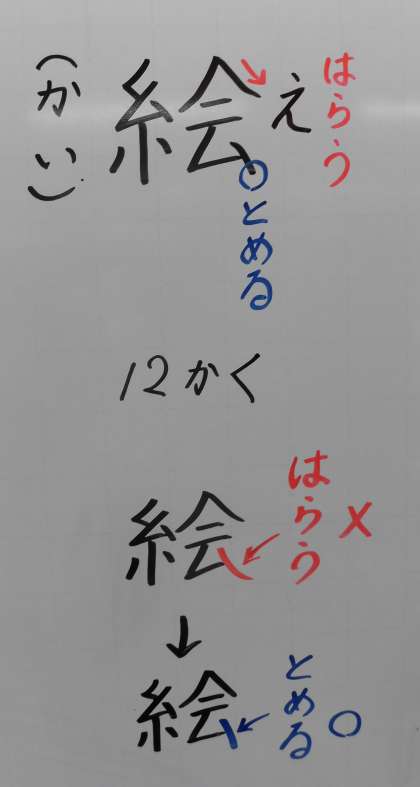 絵
え
(かい)
はらう
○とめる
12かく
絵
はらう
×
↓
絵
とめる
○